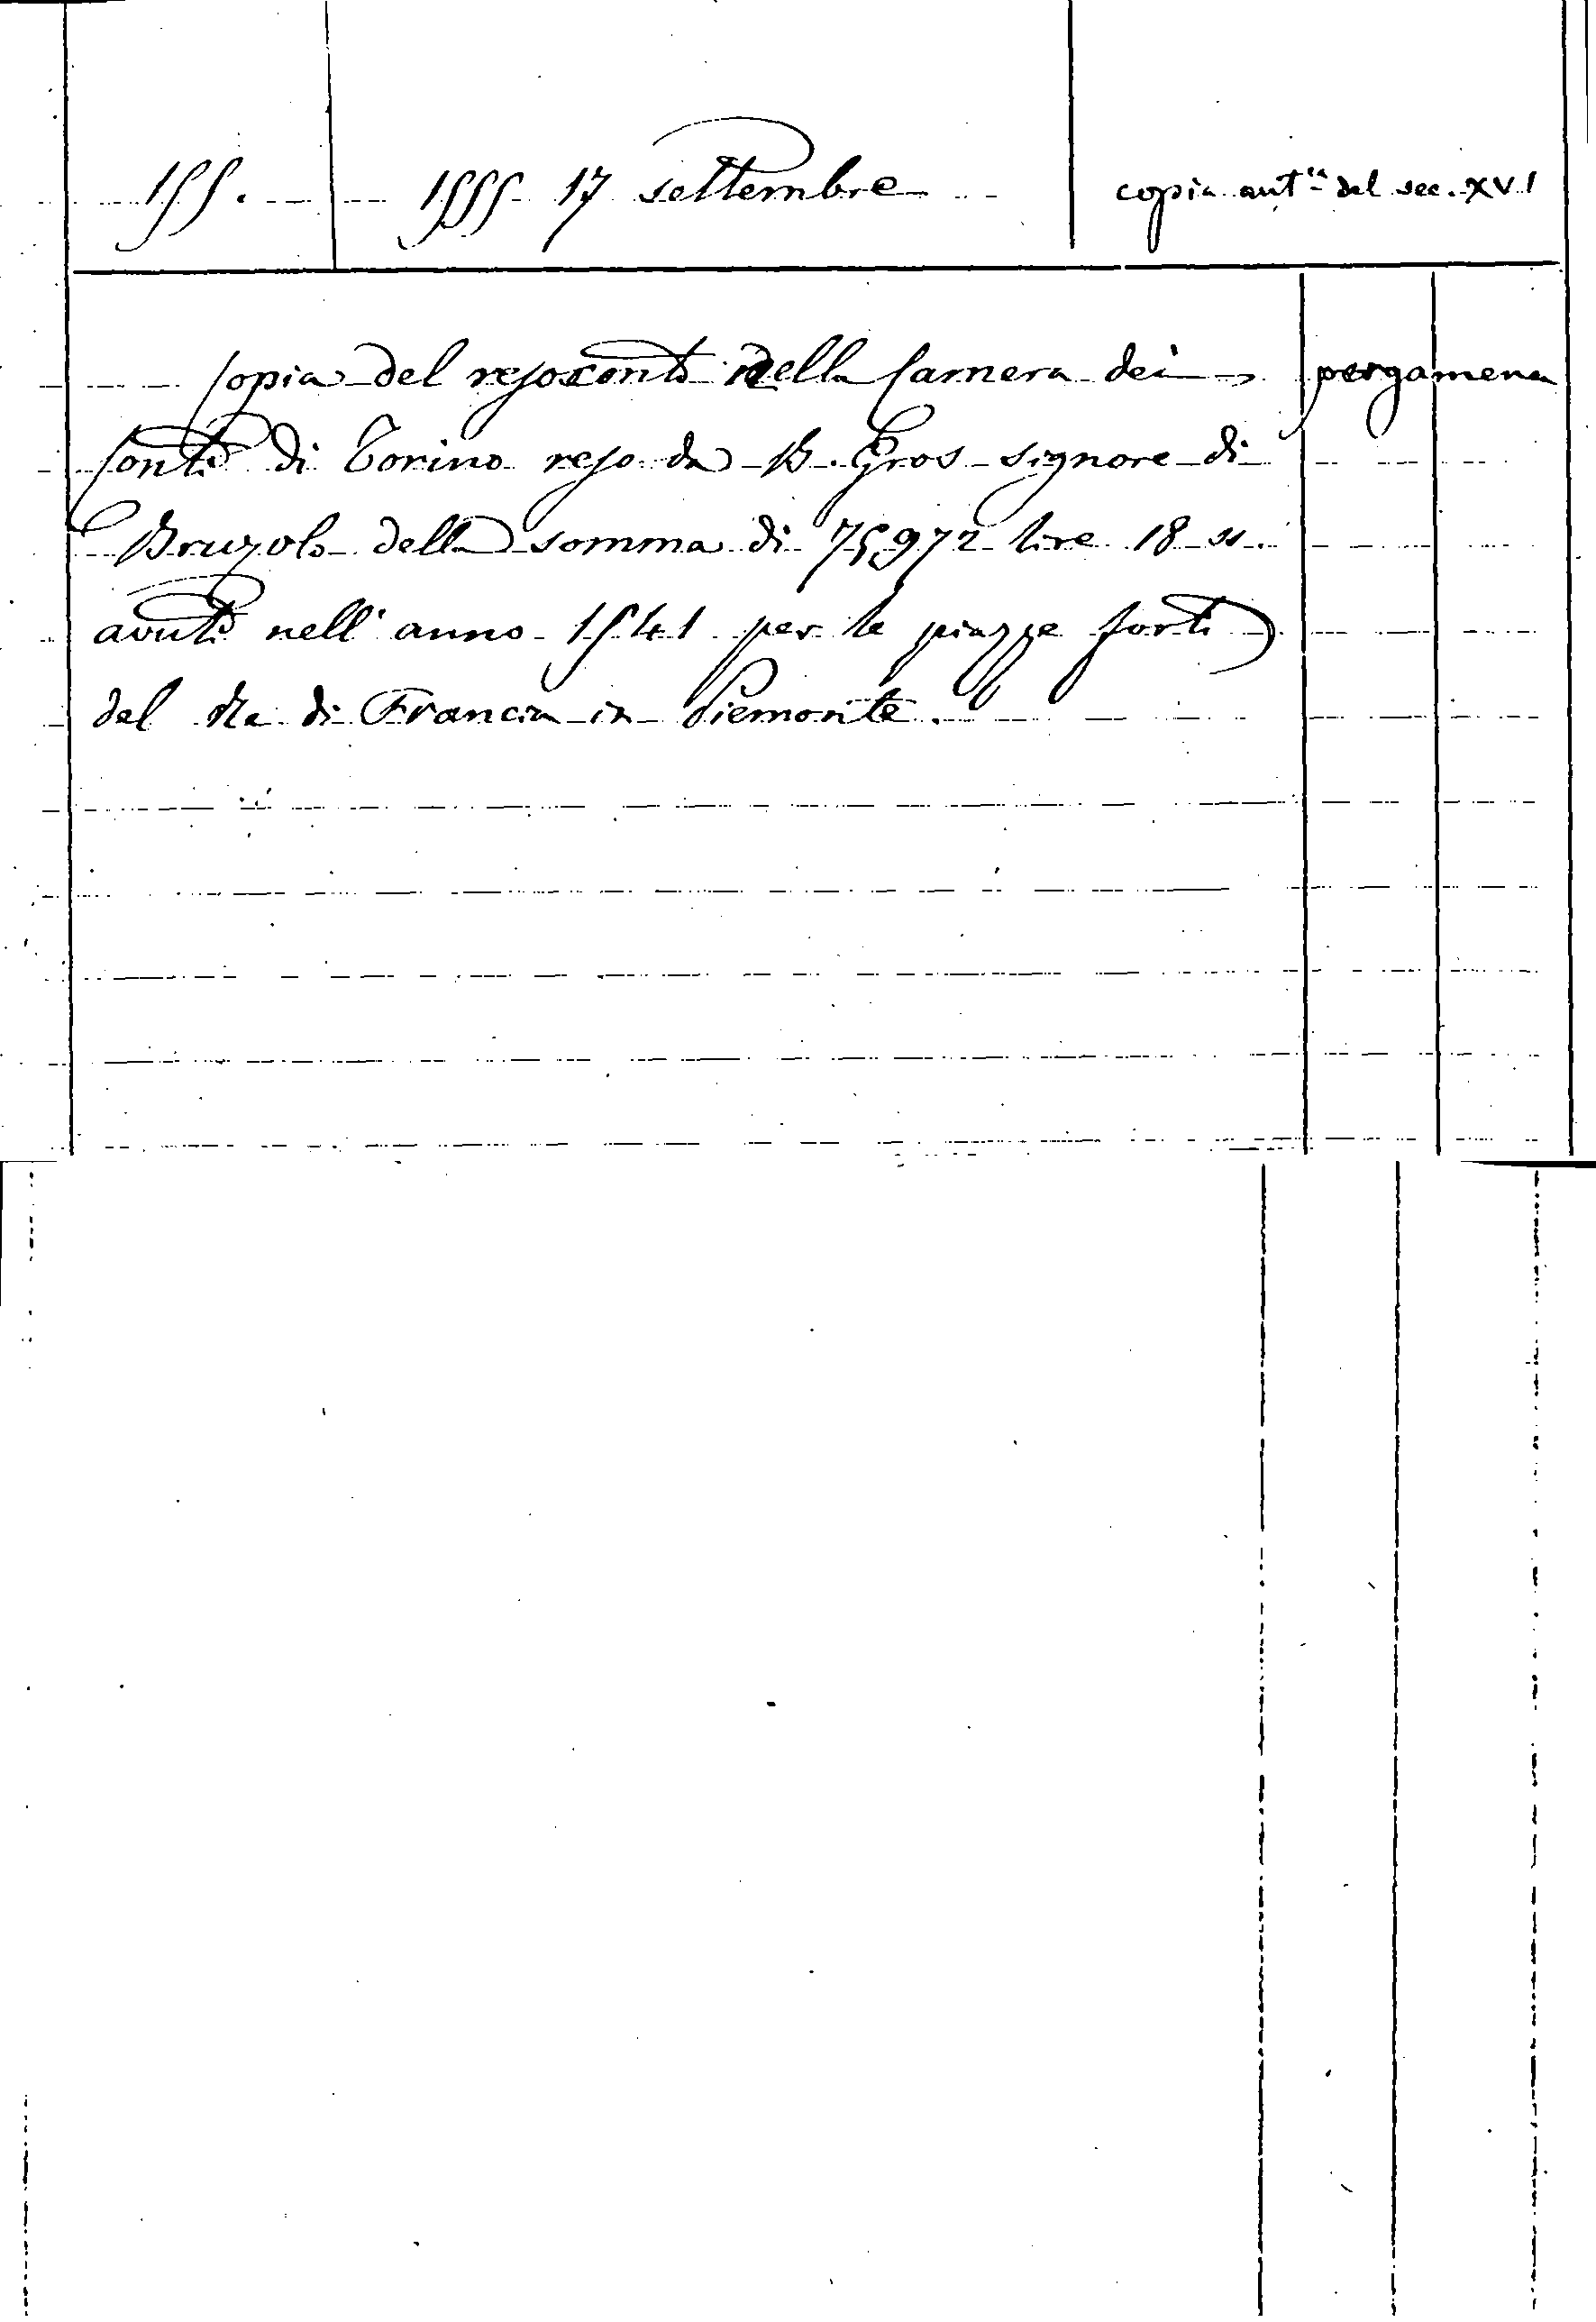 155. 1555 17 settembre copia aut.ca del sec. XVI
Copia del resoconto della Camera dei pergamena
Conti di Torino reso da B. Gros signore di
Bruzolo della somma di 75972 lire 18 s.
avute nell'anno 1541 per le piazze forti
del Re di Francia in Piemonte.